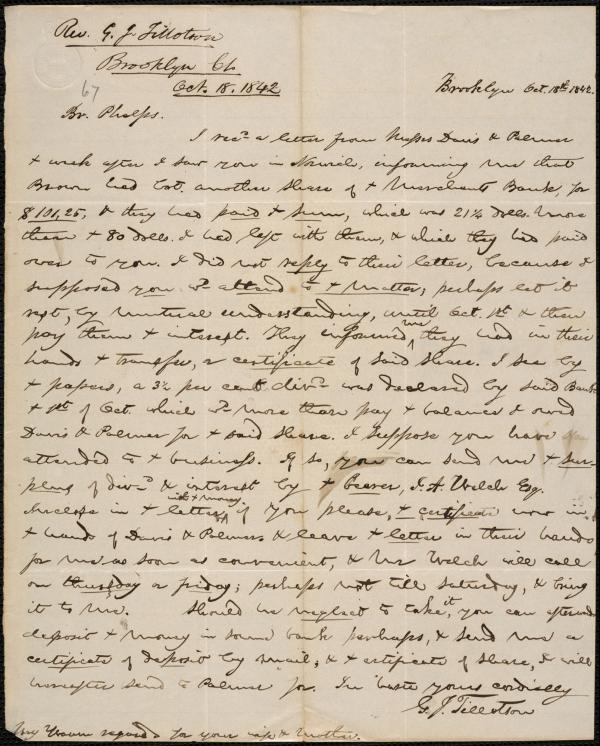 Rev. G. J. Tillotson
Brooklyn Ct.
Oct. 18. 1842
67
Brooklyn Oct. 18th 1842.
Br. Phelps.
I recd a letter from Messrs Davis & Palmer
+ week after I saw you in Norwich, informing me that
Brown had bot. another share of + Merchants Bank, for
$101,25, & they had paid + sum, which was 21¼ dolls. more
than + 80 dolls. I had left with them, & which they had paid
over to you. I did not reply to their letter, because I
supposed you wd attend to + matter; perhaps let it
rest, by mutual understanding, until Oct. 1st & then
pay them + interest. They informed me they had in their
hands + transfer, or certificate of said share. I see by
+ papers, a 3½ per cent divd was declared by said Bank
+ 1st of Oct. which wd more than pay + balance I owed
Davis & Palmer for + said share. I suppose you have
attended to + business. If so, you can send me + sur-
plus of divd & interest by + bearer, J. A. Welch Esq.
Inclose in + letter, if you please, + certificate now in
+ hands of Davis & Palmer & leave + letter in their hands
for me as soon as convenient, & Mr Welch will call
on thursday or friday; perhaps not till Saturday, & bring
it to me. Should he neglect to take it, you can afterwards
deposit + money in some bank perhaps, & send me a
certificate of deposit by mail; & + certificate of share, I will
hereafter send to Palmer for. In haste yours cordially
G. J. Tillotson
My warm regards for your wife & mother.